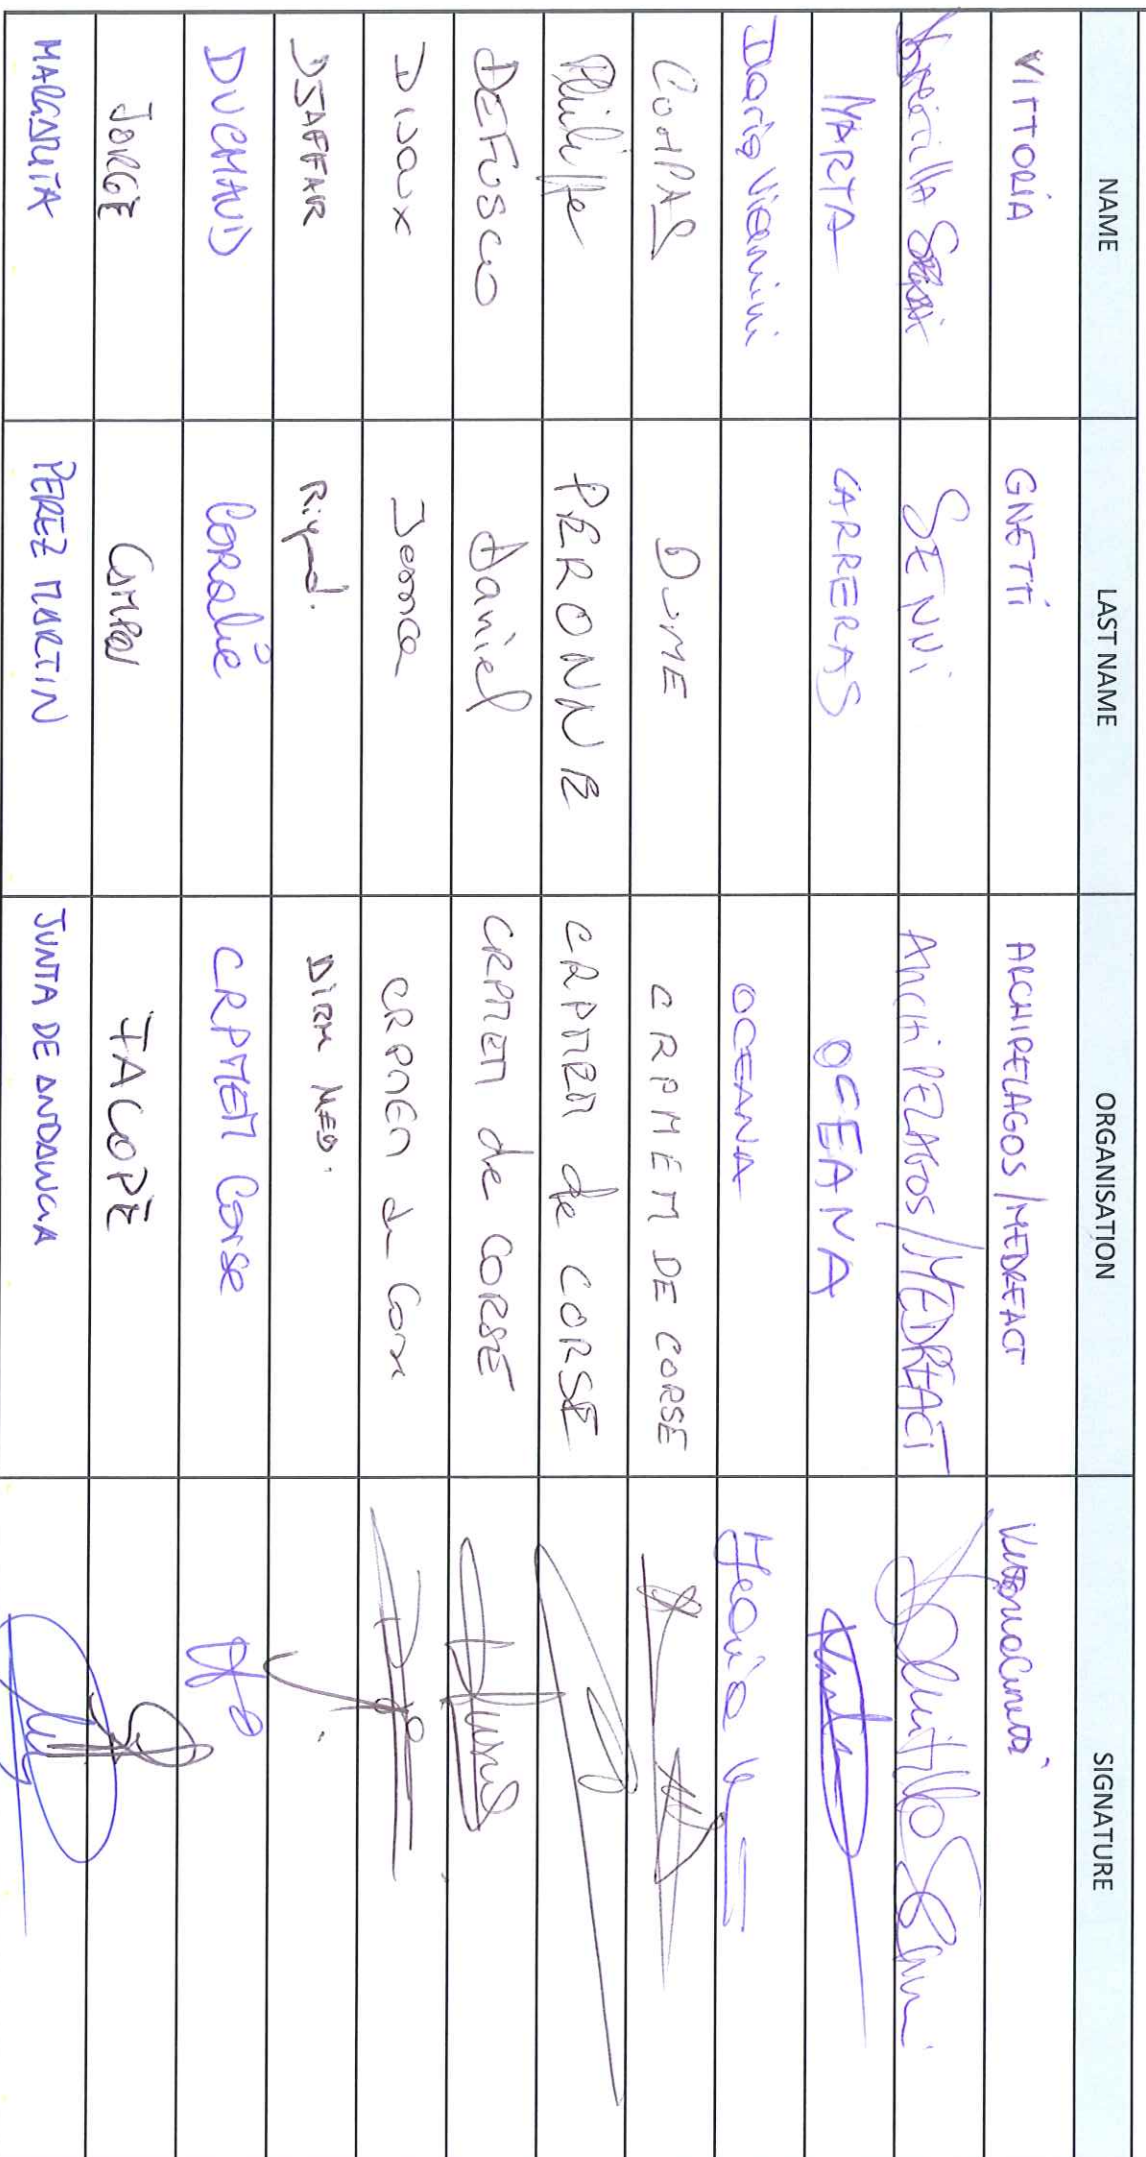 NAME LAST NAME ORGANISATION SIGNATURE
VITTORIA GNETTI ARCHIPELAGOS/MEDREACT
SENNI ARCHIPELAGOS/MEDREACT
MARTA CARRERAS OCEANA
Ilaria Vielmini OCEANA
COMPAS DUME CRPMEM DE CORSE
Philippe PERONNE CRPMEM de CORSE
DEFUSCO Daniel CRPMEM de CORSE
CRPMEM de Corse
DJAFFAR Riyad. DIRM MED.
DURMAUD Coralie CRPMEM Corse
JORGE CAMPOS FACOPE
MARGARITA PEREZ MARTIN JUNTA DE ANDALUCIA